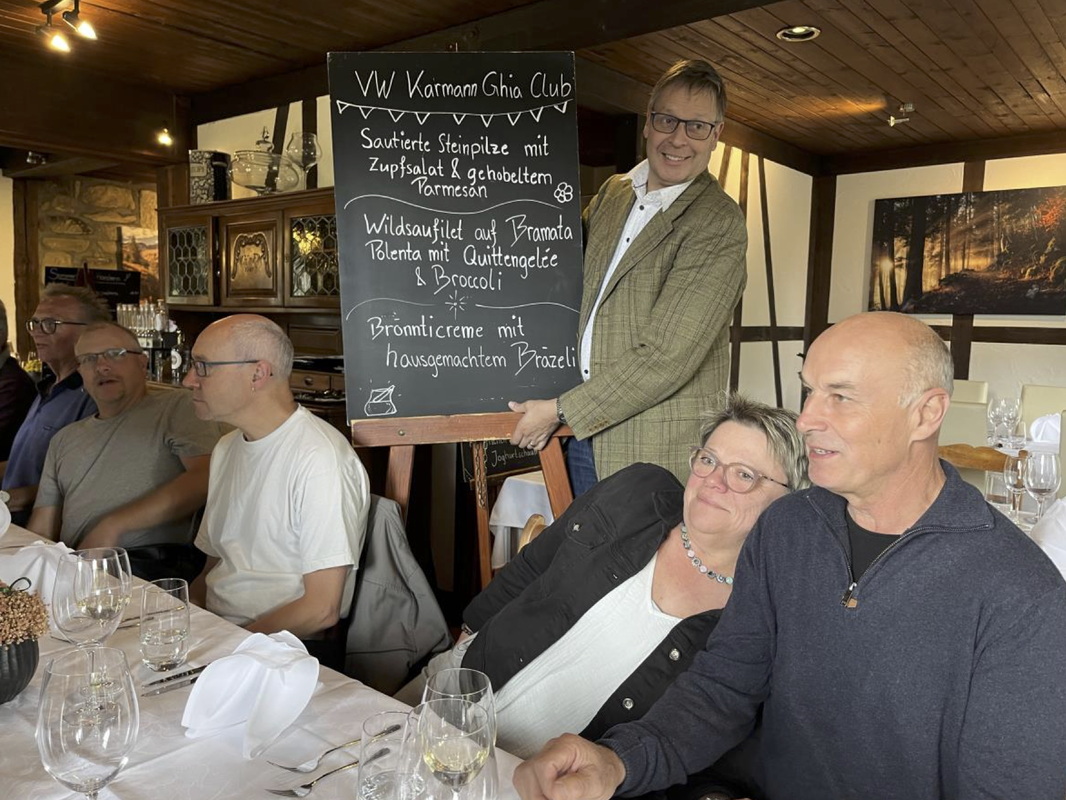 VW Karmann Ghia Club
Sautierte Steinpilze mit
Zupfsalat & gehobeltem
Parmesan
Wildsaufilet auf Bramata
Polenta mit Quittengelée
& Broccoli
Brönnticreme mit
hausgemachtem Bräzeli